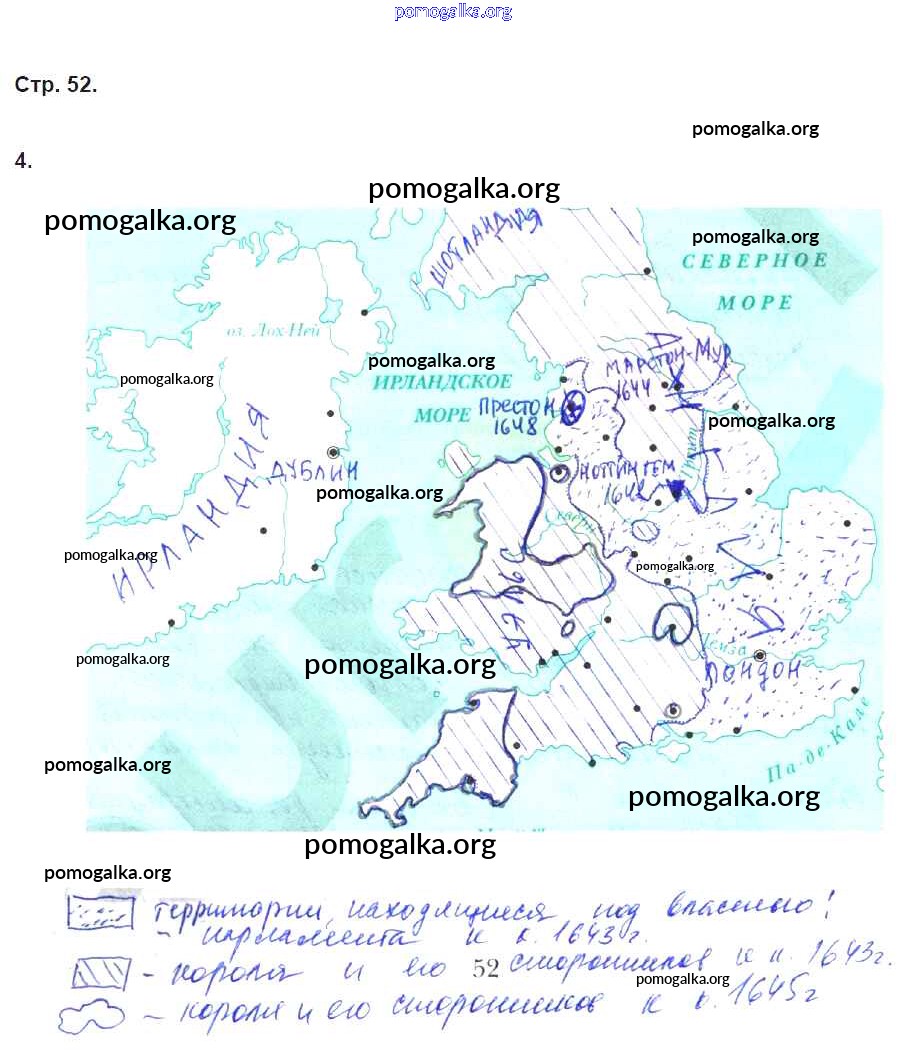 pomogalka.org
Стр. 52.
pomogalka.org
4.
pomogalka.org
pomogalka.org
ШОТЛАНДИЯ
pomogalka.org
СЕВЕРНОЕ
МОРЕ
оз. Лох-Ней
МАРСТОН-МУР
1644
pomogalka.org
pomogalka.org
ИРЛАНДСКОЕ
МОРЕ
ПРЕСТОН
1648
pomogalka.org
ИРЛАНДИЯ
ДУБЛИН
НОТТИНГЕМ
1642
pomogalka.org
pomogalka.org
pomogalka.org
УЭЛЬС
pomogalka.org
pomogalka.org
ЛОНДОН
Па-де-Кале
pomogalka.org
pomogalka.org
pomogalka.org
pomogalka.org
территории, находящиеся под властью:
- парламента к к. 1643 г.
- короля и его 52 сторонников к к. 1643 г.
pomogalka.org
- короля и его сторонников к к. 1645 г